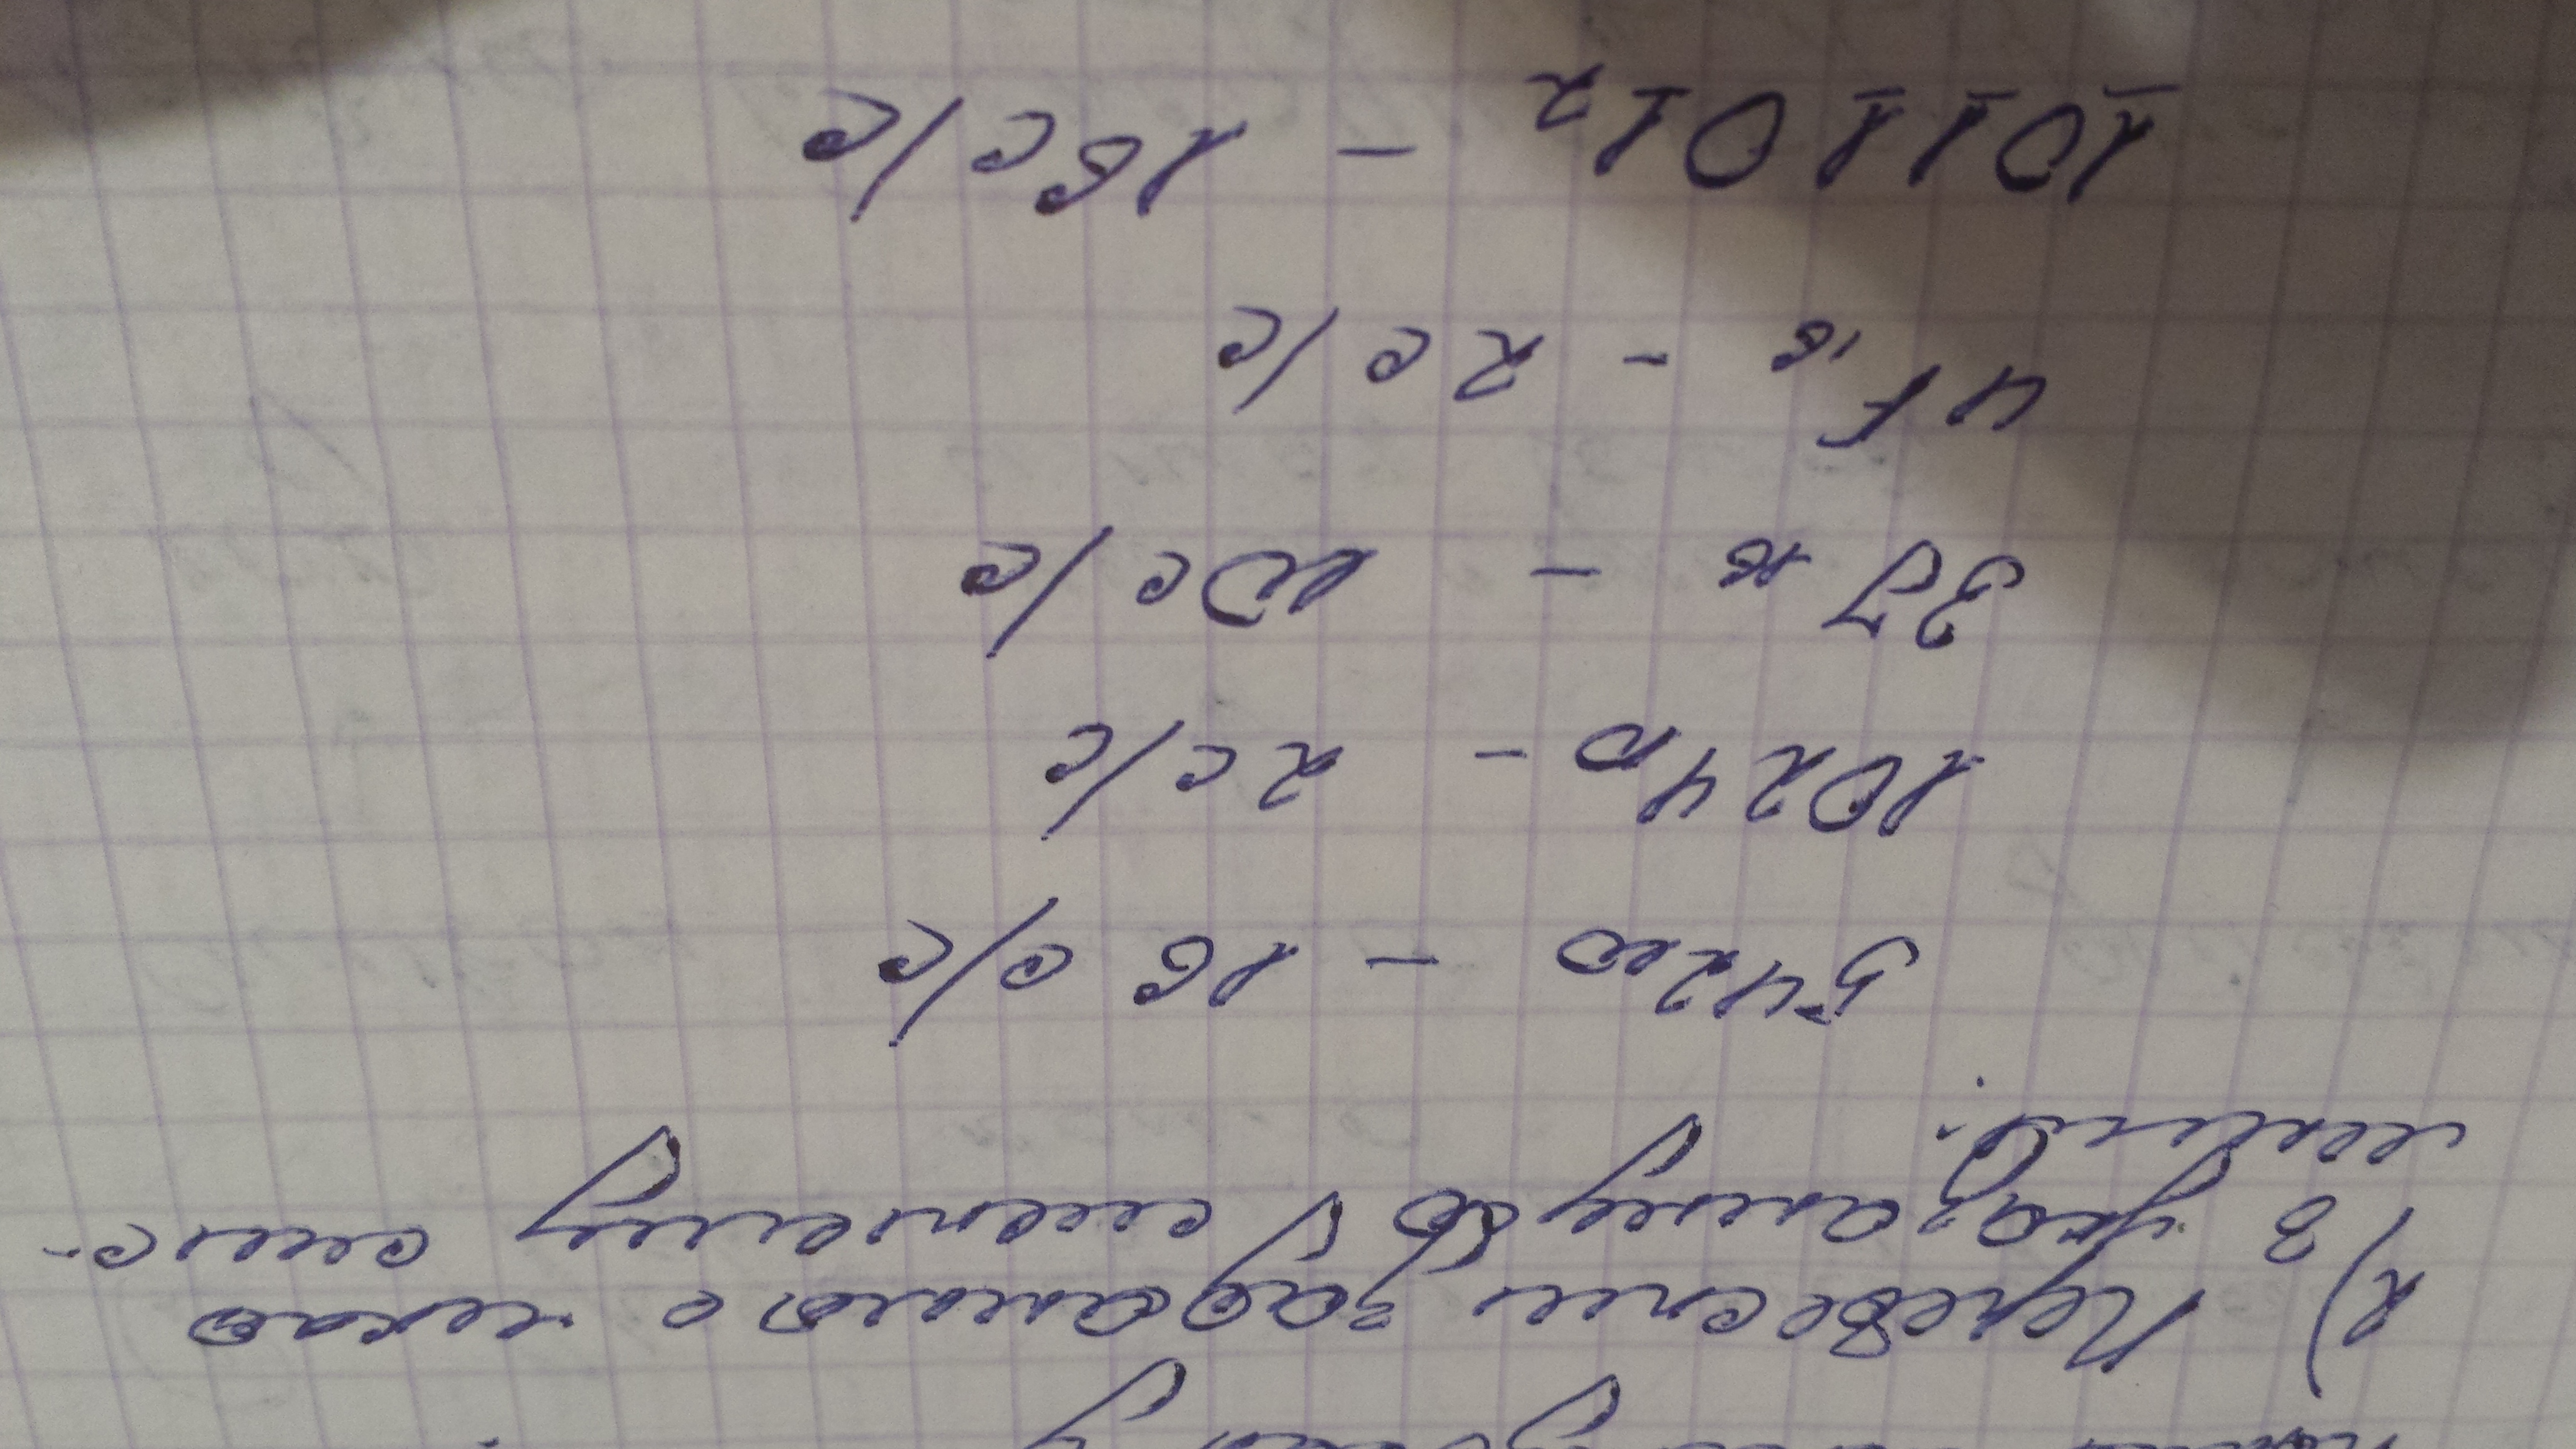 2) Перевести заданное число
в указанную систему счис-
ления:
542₁₀ - 16 с/с
1024₁₀ - 2 с/с
37₁₆ - 10 с/с
4F₁₆ - 2 с/с
101101₂ - 16 с/с